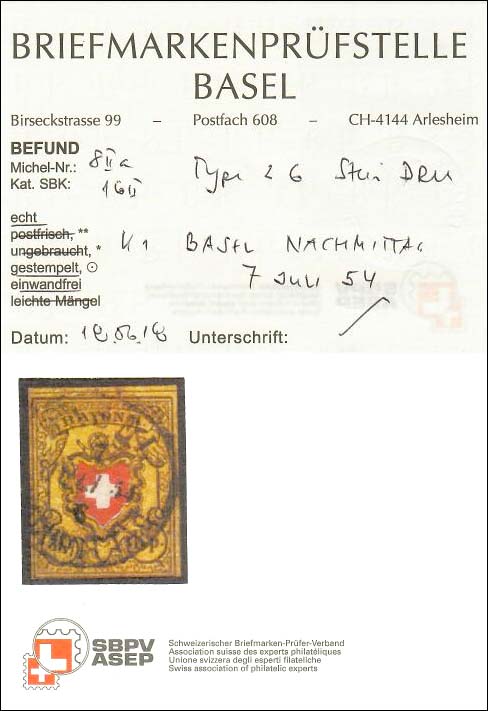 BRIEFMARKENPRÜFSTELLE
BASEL
Birseckstrasse 99 – Postfach 608 – CH-4144 Arlesheim
BEFUND
Michel-Nr.: 8 II a Type 26 Stein
Kat. SBK: 16 II
echt
postfrisch, **
ungebraucht, * K1 BASEL NACHMITTAG
gestempelt, ⊙ 7 JULI 54
einwandfrei
leichte Mängel
Datum: Unterschrift:
RAYON II
SBPV
ASEP
Schweizerischer Briefmarken-Prüfer-Verband
Association suisse des experts philatéliques
Unione svizzera degli esperti filateliche
Swiss association of philatelic experts